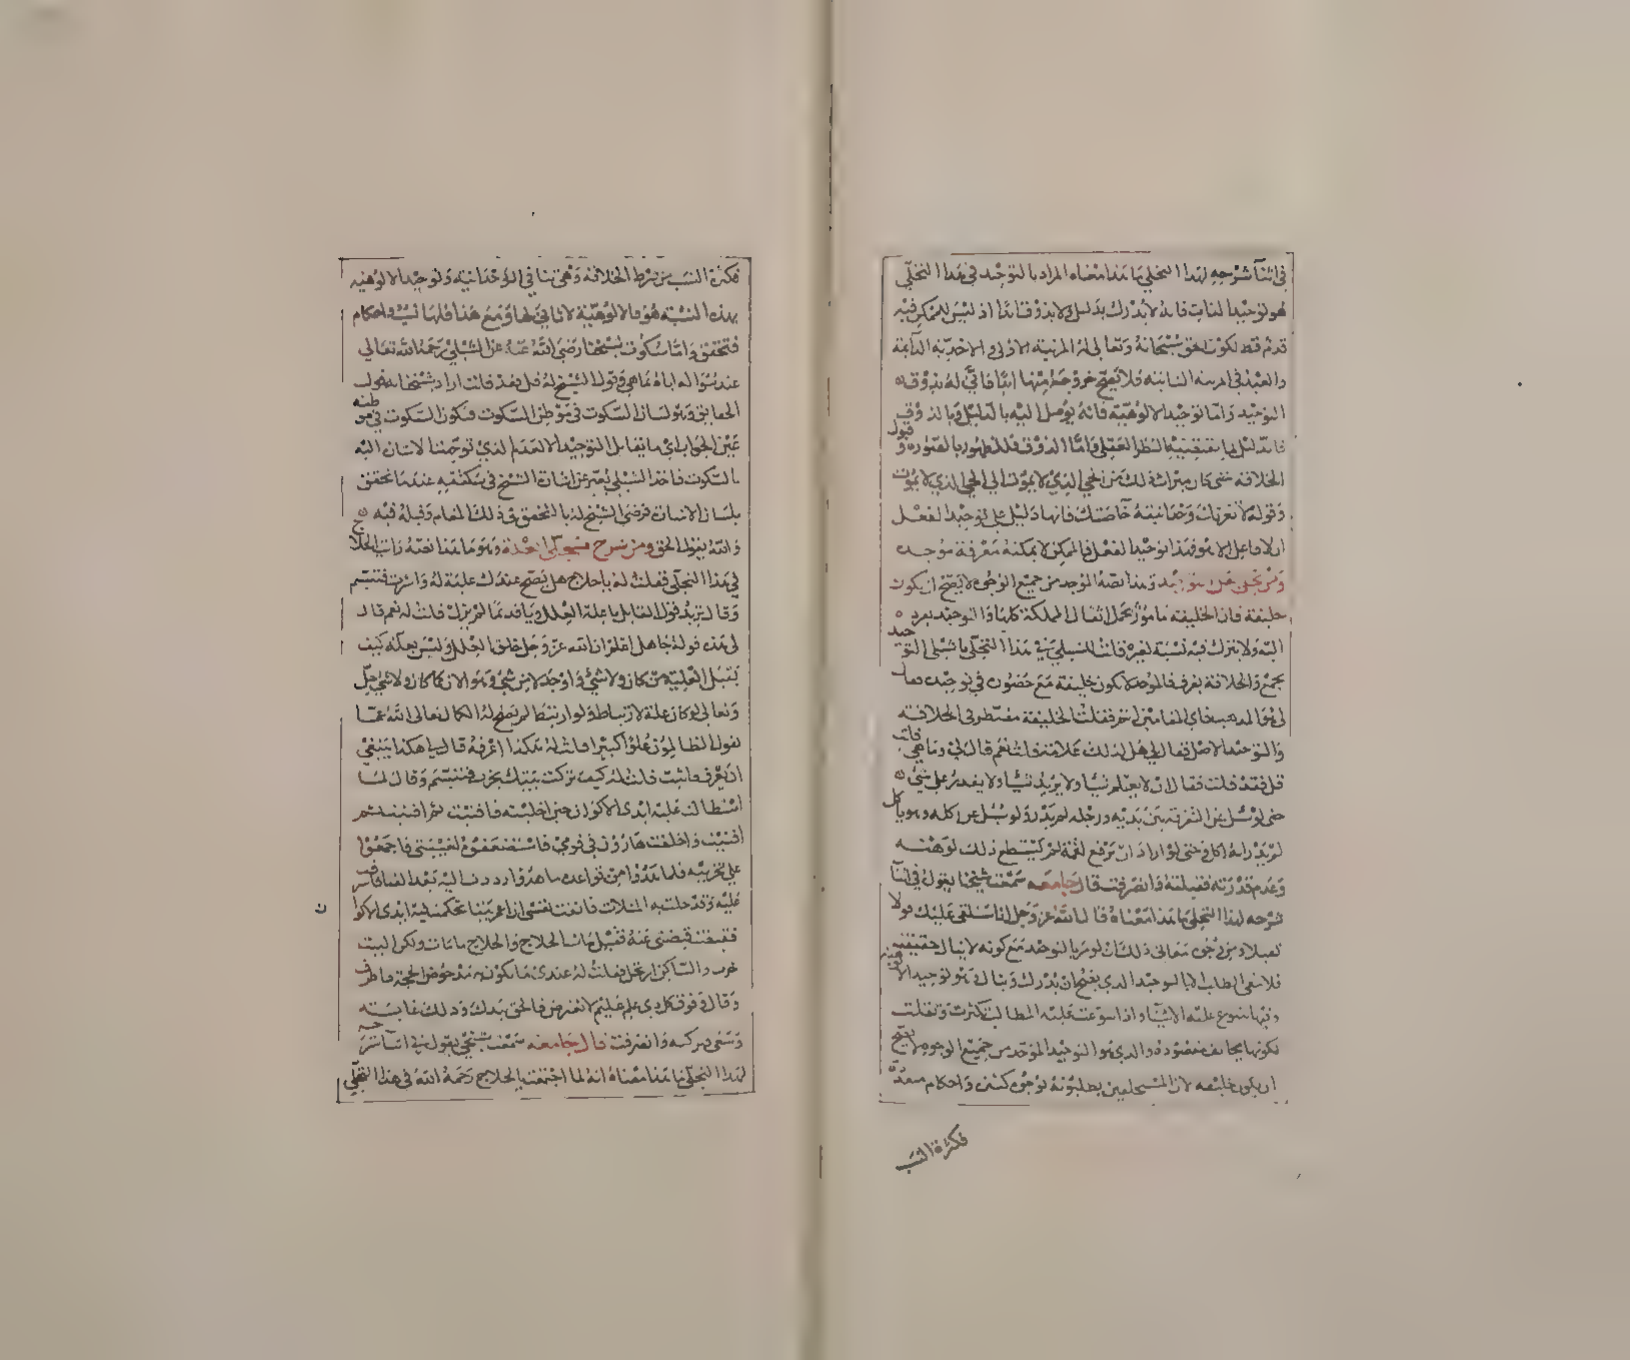 في اثنآ شرحه لهذا التجلي ما هذا معناه المراد بالتوحيد في هذا التجلي
هو توحيد الذات فانه لا يدرك بدليل ولا بذوق ابدا اذ ليس للممكن فيه
قدم قط لكون الحق سبحانه وتعالى له المرتبة الاولى والاحدية الدائمة
والعبد في المرتبة الثانية فلا يصح خروجه منها ابدا فانى له بذوق
التوحيد واما توحيد الالوهية فانه يوصل اليه بالدليل وبالذوق
فالدليل ما يقتضيه النظر العقلي واما الذوق فللظهور بالصورة وقبول
الخلافة حتى كان ميراث ذلك من الحي الذي لا يموت الى الحي الذي لا يموت
وقوله لا تعرفك وحقايقه خاصتك فانها دليل على توحيد الفعل
اذ لا فاعل الا هو فهذا توحيد الفعل فالممكن لا يمكنه معرفة موجده
ومن تجلي توحيد وهذا نصه الموحد من جميع الوجوه لا يصح ان يكون
خليفة فان الخليفة مامور بحمل اثقال المملكة كلها والتوحيد يفرده
اليه ولا يترك فيه نسبة لغيره قلت للشبلي في هذا التجلي يا شبلي التوحيد
يجمع والخلافة تفرق فالموحد لا يكون خليفة مع حضوره في توحيده فقال
لي هو المذهب فاي المقامين اتم فقلت الخليفة مضطر في الخلافة
والتوحيد الاصل فقال لي هل لذلك علامة قلت نعم قال لي وما هي قلت
قل فقد قلت فقال ان لا يعلم شيا ولا يريد شيا ولا يقدر على شي
حتى لو سئل عن التفرقة بين يديه ورجليه لم يدر ولو سئل عن اكله وهو ياكل
لم يدر انه اكل وحتى لو اراد ان يرفع لقمة لم يستطع ذلك لوهنه
وعدم قدرته فقبلته وانصرفت قال جامعه سمعت شيخنا يقول في اثنآ
شرحه لهذا التجلي ما هذا معناه قال الله عز وجل انا سنلقي عليك قولا
ثقيلا ومن وجوه معاني ذلك انك لو مر بالتوحيد مع كونه لا ينال حقيقته
فلا يبقى الطالب الا بالتوحيد الذي يصح ان يدرك وينال وهو توحيد الالوهية
وفيها تتنوع عليه الاشيآ واذا تنوعت عليه المطالب كثرت وثقلت
لكونها بخلاف مقصوده والذي هو التوحيد الموحد من جميع الوجوه لا يصح
ان يكون خليفة لان المستخلفين يطلبونه بوجوه كثيرة واحكام متعددة
فكثرة النسب
فكثرة النسب من شرط الخلافة وهي تنافي الوحدانية وتوحيد الالوهية
بهذه النسبة هو فالالوهية لا ثاني لها ومع هذا فلها نسب واحكام
فتحقق واما سكوت شيخنا رضي الله عنه عن الشبلي رحمه الله تعالى
عند سؤاله اياه بما هي وقول الشيخ له قل فقد قلت اراد شيخنا بقول
الحقايق وهو لسان السكوت في موطن السكوت فكون السكوت في موطنه
عين الجواب اي ما يقابل التوحيد الا العدم الذي توجهنا لاشارة اليه
بالسكوت فاخذ الشبلي يعبر عن اشارة الشيخ في سكتته عندما تحقق
بلسان الانسان فرضى الشيخ له بالتحقق في ذلك المقام وقبله فيه
والله يقول الحق ومن شرح تجلي العلة وهو ما هذا نصه رايت الحلاج
في هذا التجلي فقلت له يا حلاج هل تصح عندك علية له واشرت فتبسم
وقال تريد قول القايل يا علة العلل ويا قديما لم يزل قلت له نعم قال
لي هذه قولة جاهل اعلم ان الله عز وجل خالق العلل وليس بعلة كيف
يقبل العلية من كان ولا شي واوجد لا من شي وهو الان كما كان ولا شي جل
وتعالى لو كان علة لارتبط ولو ارتبط لم يصح له الكمال تعالى الله عما
يقول الظالمون علوا كبيرا قلت له هكذا اعرفه قال لي هكذا ينبغي
ان يعرف فاثبت قلت له كيف تركت بيتك يخرب فتبسم وقال لما
استطالت عليه ايدي الاكوان حين اخليته فافنيت ثم افنيت ثم
افنيت واخلفت هارون في قومي فاستضعفوه لغيبتي فاجمعوا
على تخريبه فلما هدوا من قواعده ما هدوا رددت اليه بعد الفنا فاشرفت
عليه وقد حلت به المثلات فانفت نفسي ان اعمر بيتا تحكمت فيه ايدي الاكوان
فقبضت قبضتي عنه فقيل مات الحلاج والحلاج ما مات ولكن البيت
خرب والساكن ارتحل فقلت له عندي ما تكون به مدحوض الحجة فاطرق
وقال وفوق كل ذي علم عليم لا تعترض فالحق بيدك وذلك غاية
وسعي فتركته وانصرفت قال جامعه سمعت شيخي يقول في اثنآ شرحه
لهذا التجلي ما هذا معناه انه لما اجتمعت بالحلاج رحمه الله في هذا التجلي